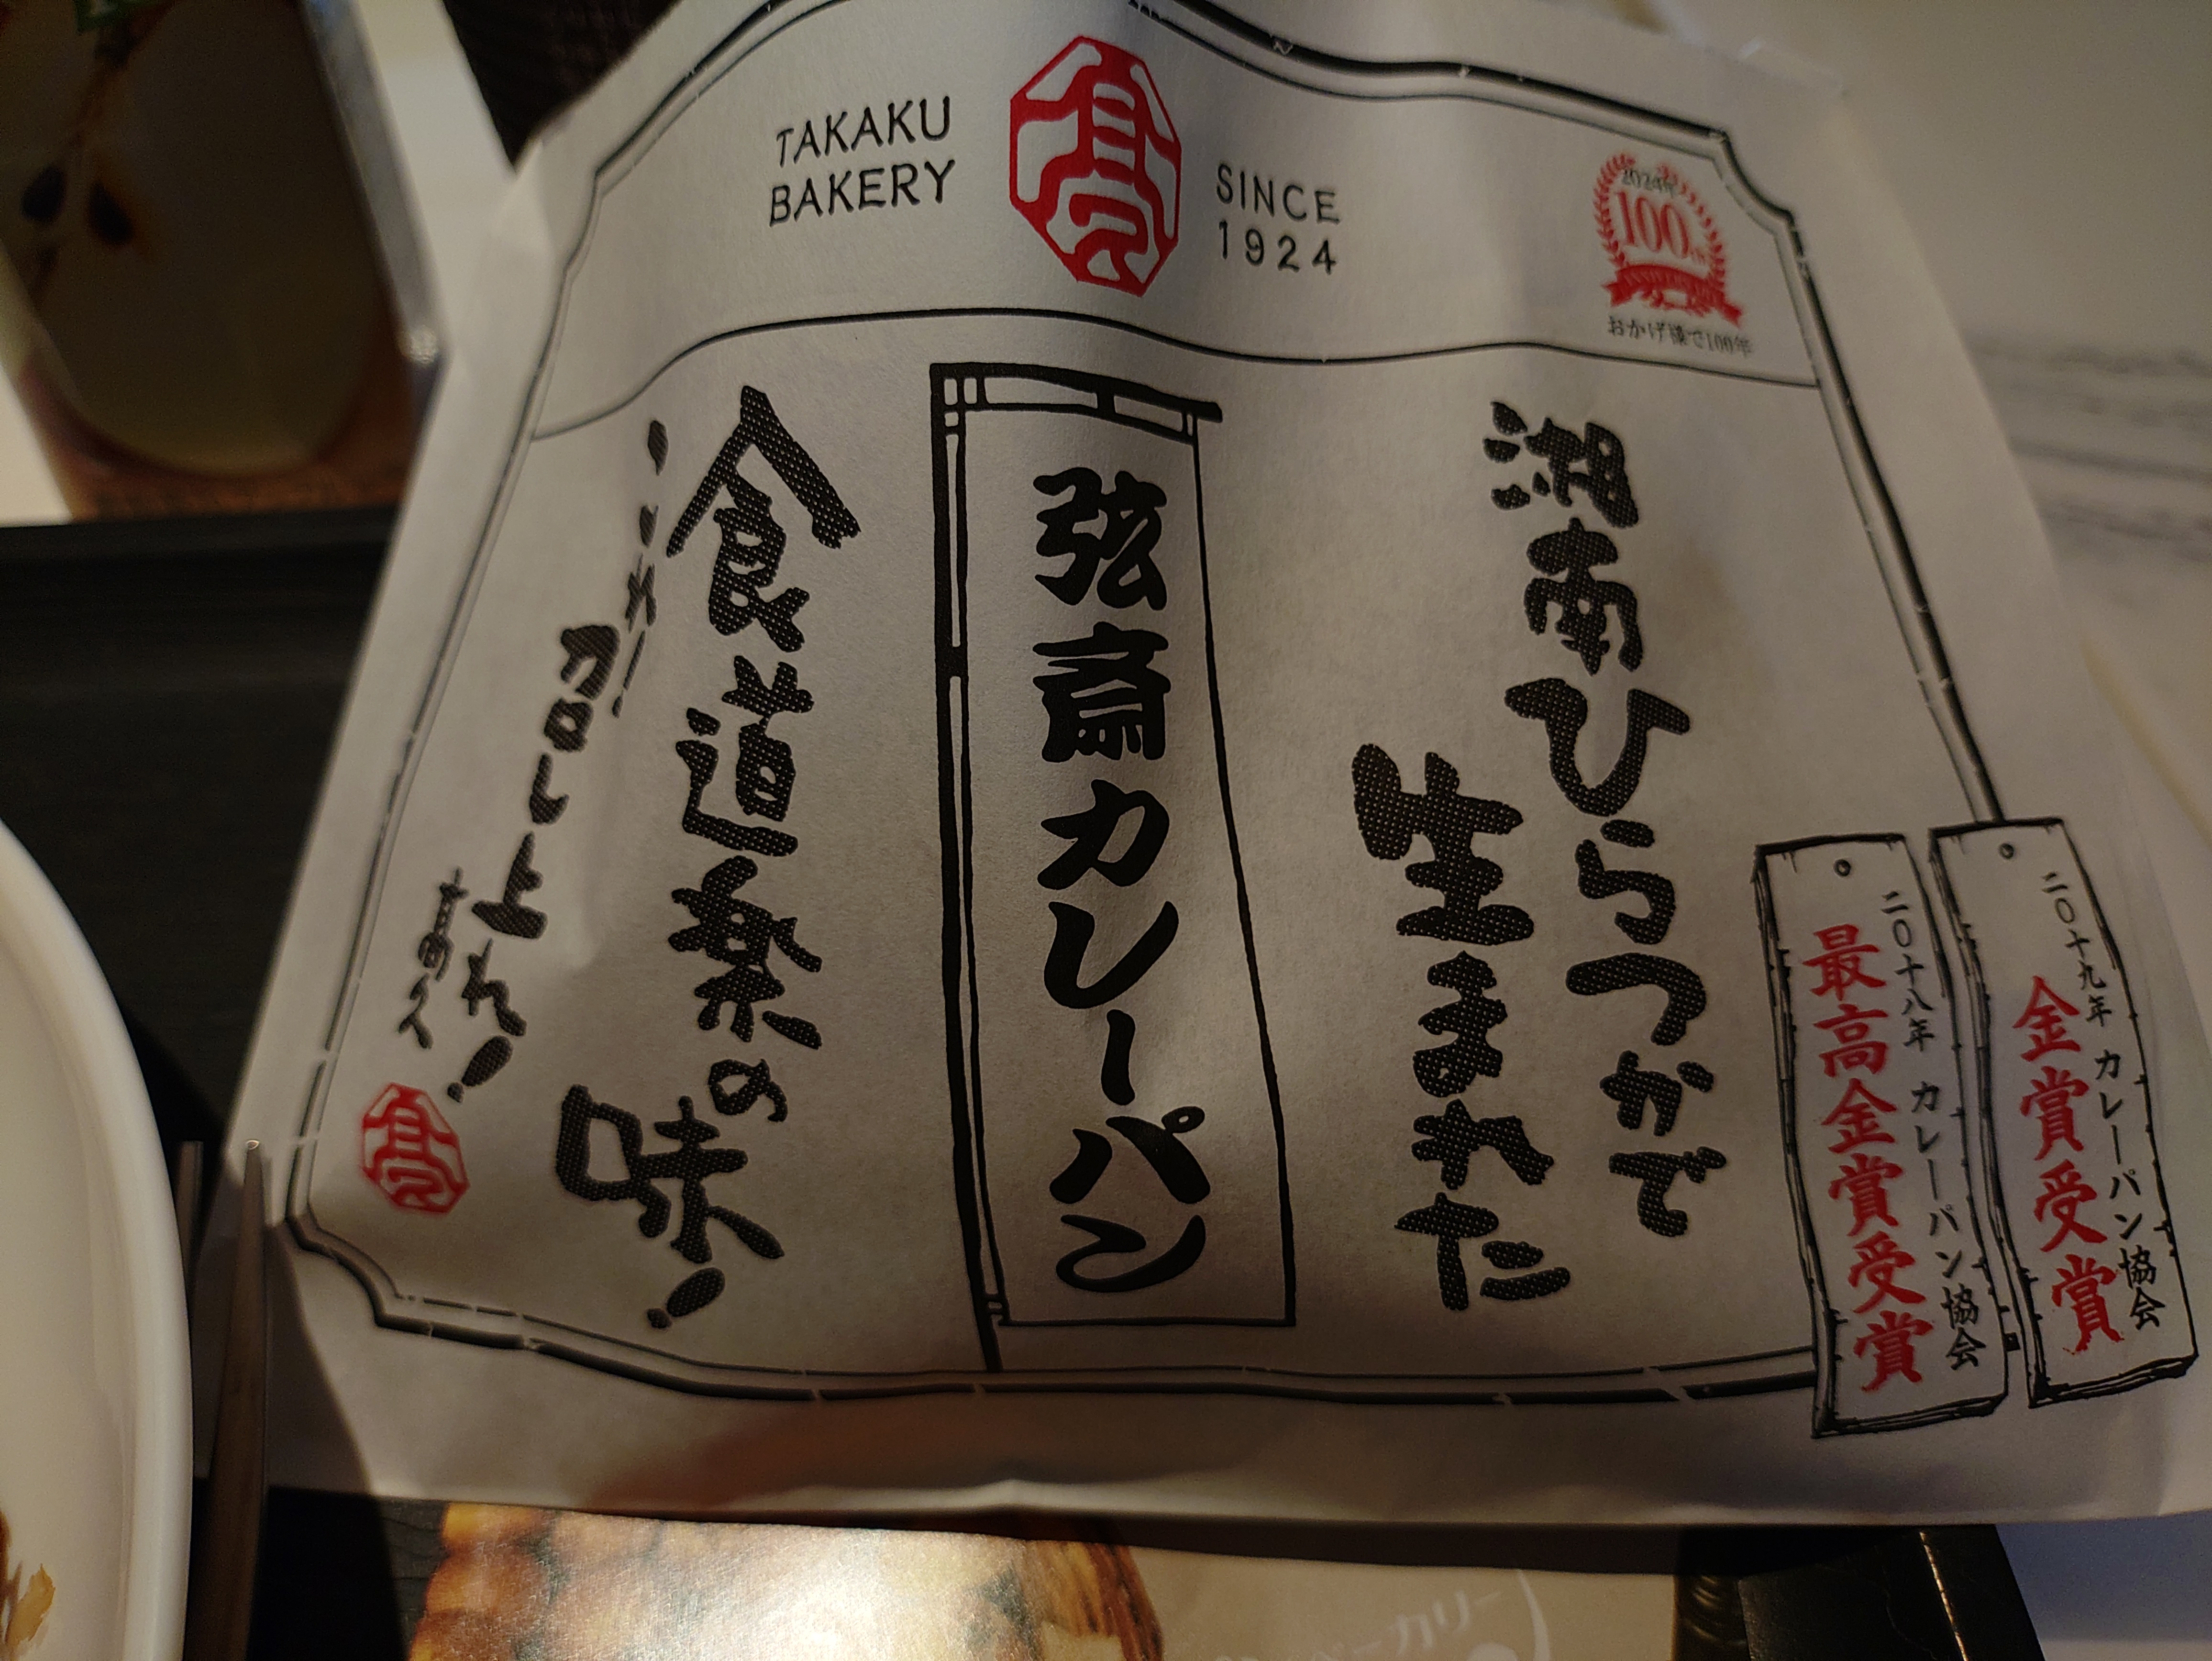 TAKAKU
BAKERY
髙久
SINCE
1924
2024年
100th
ANNIVERSARY
おかげ様で100年
二〇十九年 カレーパン協会
金賞受賞
二〇十八年 カレーパン協会
最高金賞受賞
湘南ひらつかで
生まれた
弦斎カレーパン
食道楽の味!
これ
コロしょれ!
ベーカリー